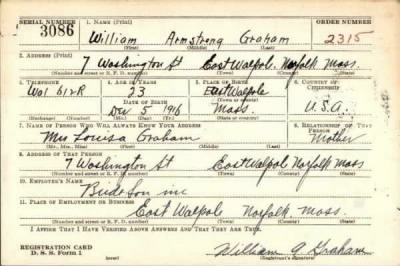 SERIAL NUMBER 1. NAME (Print) ORDER NUMBER
3086 William Armstrong Graham 2315
(First) (Middle) (Last)
2. ADDRESS (Print)
7 Washington St East Walpole, Norfolk Mass.
(Number and street or R. F. D. number) (Town) (County) (State)
3. TELEPHONE 4. AGE IN YEARS 5. PLACE OF BIRTH 6. COUNTRY OF CITIZENSHIP
Wal 612R 23 East Walpole
DATE OF BIRTH (Town or county)
Dec 5 1916 Mass. U.S.A.
(Mo.) (Day) (Yr.) (State or country)
7. NAME OF PERSON WHO WILL ALWAYS KNOW YOUR ADDRESS 8. RELATIONSHIP OF THAT PERSON
Mrs Louisa Graham Mother
(Mr., Mrs., Miss) (First) (Middle) (Last)
9. ADDRESS OF THAT PERSON
7 Washington St East Walpole Norfolk Mass
(Number and street or R. F. D. number) (Town) (County) (State)
10. EMPLOYER'S NAME
Bird & Son inc
11. PLACE OF EMPLOYMENT OR BUSINESS
East Walpole Norfolk Mass.
(Number and street or R. F. D. number) (Town) (County) (State)
I AFFIRM THAT I HAVE VERIFIED ABOVE ANSWERS AND THAT THEY ARE TRUE.
REGISTRATION CARD
D. S. S. Form 1 (over) William A. Graham